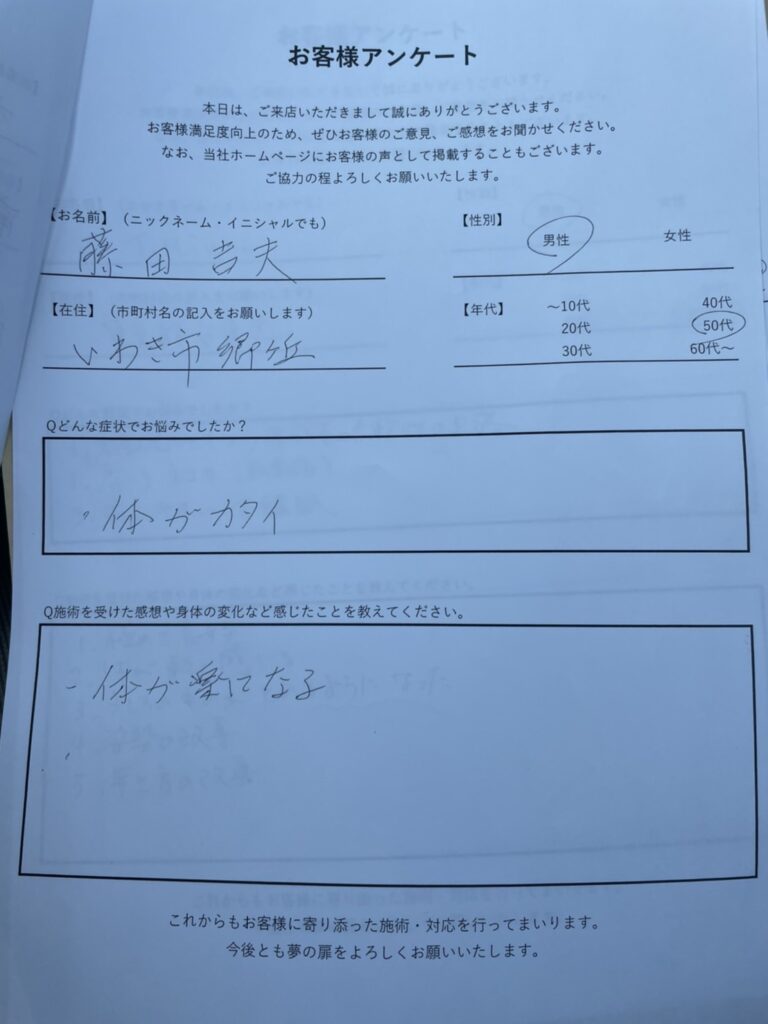 お客様アンケート
本日は、ご来店いただきまして誠にありがとうございます。
お客様満足度向上のため、ぜひお客様のご意見、ご感想をお聞かせください。
なお、当社ホームページにお客様の声として掲載することもございます。
ご協力の程よろしくお願いいたします。
【お名前】（ニックネーム・イニシャルでも）
藤田 吉夫
【性別】
男性 女性
【在住】（市町村名の記入をお願いします）
いわき市郷ヶ丘
【年代】 〜10代 40代
20代 50代
30代 60代〜
Qどんな症状でお悩みでしたか？
・体がカタイ
Q施術を受けた感想や身体の変化など感じたことを教えてください。
- 体が楽になる
これからもお客様に寄り添った施術・対応を行ってまいります。
今後とも夢の扉をよろしくお願いいたします。